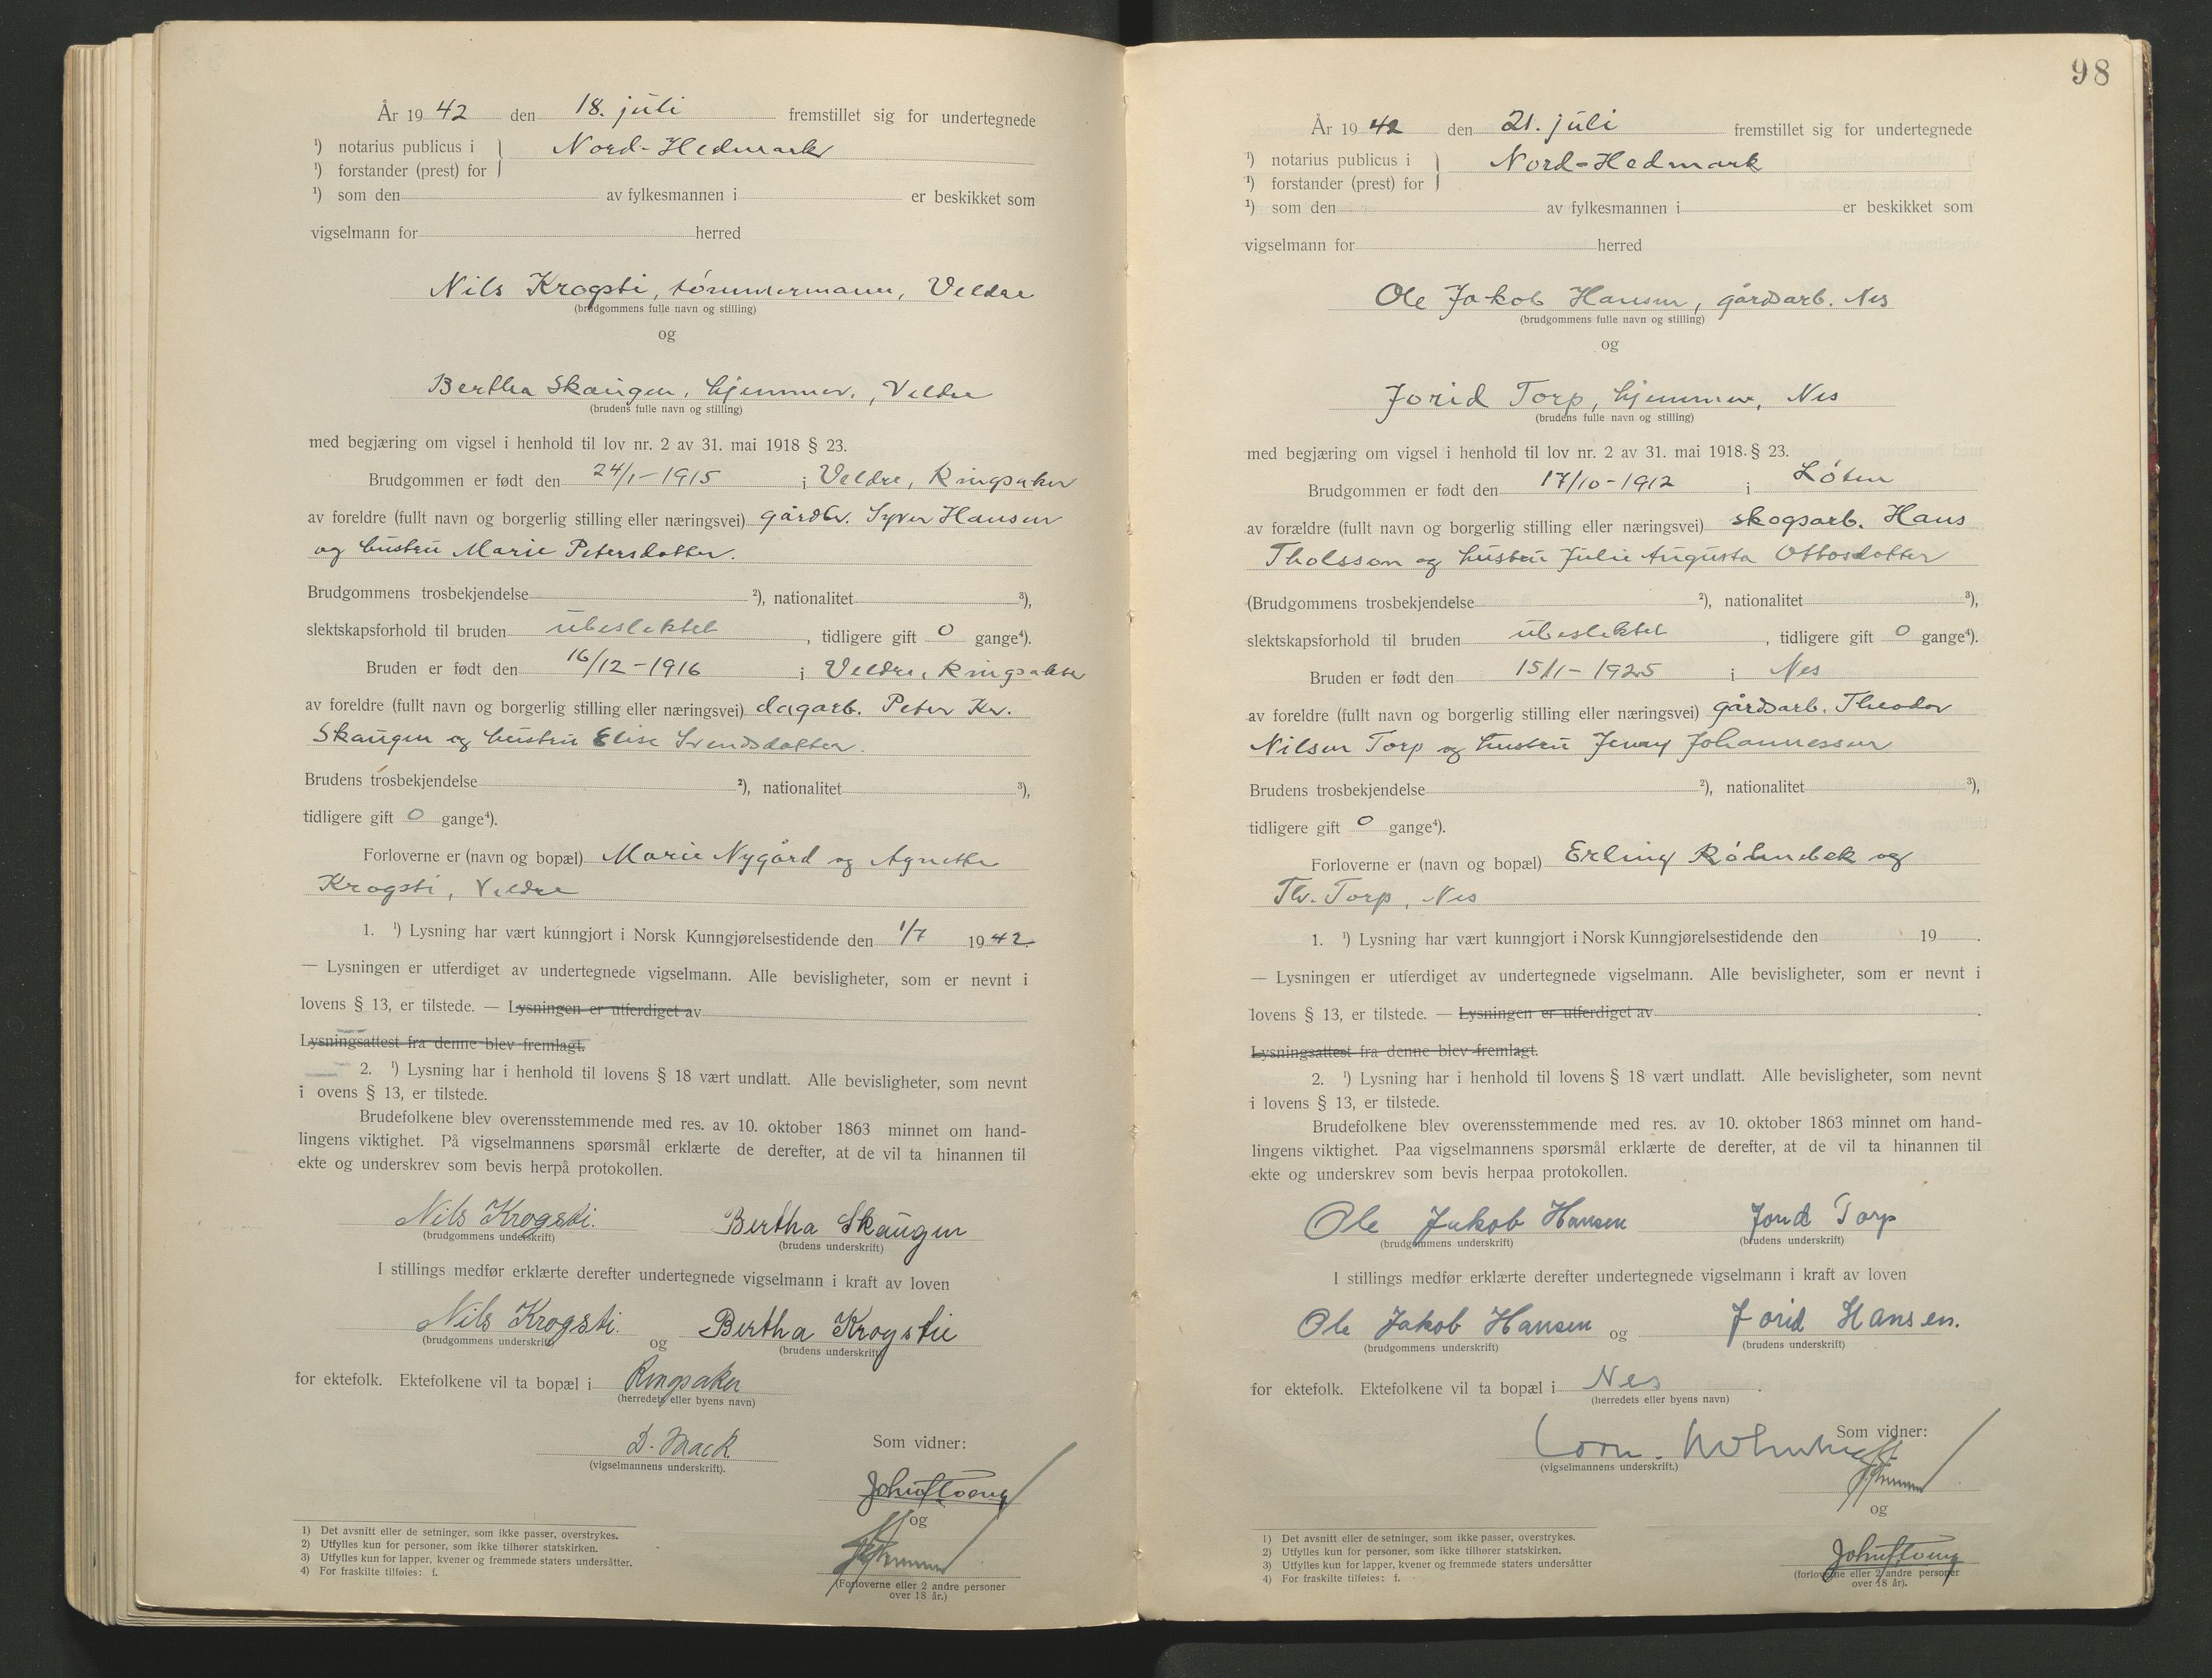 År 19 42 den 18. juli fremstillet sig for undertegnede
¹) notarius publicus i Nord-Hedmark
¹) forstander (prest) for
¹) som den av fylkesmannen i er beskikket som
vigselmann for herred
Nils Krogsti, tømmermann, Veldre
(brudgommens fulle navn og stilling)
og
Bertha Skaugen, hjemmev., Veldre
(brudens fulle navn og stilling)
med begjæring om vigsel i henhold til lov nr. 2 av 31. mai 1918 § 23.
Brudgommen er født den 24/1-1915 i Veldre, Ringsaker
av foreldre (fullt navn og borgerlig stilling eller næringsvei) gårdbr. Syver Hansen
og hustru Marie Petersdatter.
Brudgommens trosbekjendelse ²), nationalitet ³),
slektskapsforhold til bruden ubeslektet, tidligere gift 0 gange⁴).
Bruden er født den 16/12-1916 i Veldre, Ringsaker
av foreldre (fullt navn og borgerlig stilling eller næringsvei) dagarb. Peter Kr.
Skaugen og hustru Elise Svendsdatter.
Brudens trosbekjendelse ²), nationalitet ³),
tidligere gift 0 gange⁴).
Forloverne er (navn og bopæl) Marie Nygård og Agnethe
Krogsti, Veldre
1. ¹) Lysning har vært kunngjort i Norsk Kunngjørelsestidende den 1/7 1942.
— Lysningen er utferdiget av undertegnede vigselmann. Alle bevisligheter, som er nevnt i
lovens § 13, er tilstede. — Lysningen er utferdiget av
Lysningsattest fra denne blev fremlagt.
2. ¹) Lysning har i henhold til lovens § 18 vært undlatt. Alle bevisligheter, som nevnt
i ovens § 13, er tilstede.
Brudefolkene blev overensstemmende med res. av 10. oktober 1863 minnet om hand-
lingens viktighet. På vigselmannens spørsmål erklærte de derefter, at de vil ta hinannen til
ekte og underskrev som bevis herpå protokollen.
Nils Krogsti. Bertha Skaugen
(brudgommens underskrift) (brudens underskrift)
I stillings medfør erklærte derefter undertegnede vigselmann i kraft av loven
Nils Krogsti. og Bertha Krogstie
(brudgommens underskrift) (brudens underskrift)
for ektefolk. Ektefolkene vil ta bopæl i Ringsaker
(herredets eller byens navn)
D. Mack
(vigselmannens underskrift).
Som vidner:
og
(Forloverne eller 2 andre personer
over 18 år.)
1) Det avsnitt eller de setninger, som ikke passer, overstrykes.
2) Utfylles kun for personer, som ikke tilhører statskirken.
3) Utfylles kun for lapper, kvener og fremmede staters undersåtter.
4) For fraskilte tilføies: f.
98
År 19 42 den 21. juli fremstillet sig for undertegnede
¹) notarius publicus i Nord-Hedmark
¹) forstander (prest) for
¹) som den av fylkesmannen i er beskikket som
vigselmann for herred
Ole Jakob Hansen, gårdsarb. Nes
(brudgommens fulle navn og stilling)
og
Jorid Torp, hjemmev, Nes
(brudens fulle navn og stilling)
med begjæring om vigsel i henhold til lov nr. 2 av 31. mai 1918. § 23.
Brudgommen er født den 17/10-1912 i Løten
av forældre (fullt navn og borgerlig stilling eller næringsvei) skogsarb. Hans
Tholsson og hustru Julie Augusta Ottosdatter
(Brudgommens trosbekjendelse ²), nationalitet ³),
slektskapsforhold til bruden ubeslektet, tidligere gift 0 gange⁴).
Bruden er født den 15/1-1925 i Nes
av foreldre (fullt navn og borgerlig stilling eller næringsvei) gårdsarb. Theodor
Nilsen Torp og hustru Jenny Johannessen
Brudens trosbekjendelse ²), nationalitet ³),
tidligere gift 0 gange⁴).
Forloverne er (navn og bopæl) Erling og
Th. Torp, Nes
1. ¹) Lysning har vært kunngjort i Norsk Kunngjørelsestidende den 19 .
— Lysningen er utferdiget av undertegnede vigselmann. Alle bevisligheter, som er nevnt i
lovens § 13, er tilstede. — Lysningen er utferdiget av .
Lysningsattest fra denne blev fremlagt.
2. ¹) Lysning har i henhold til lovens § 18 vært undlatt. Alle bevisligheter, som nevnt
i lovens § 13, er tilstede.
Brudefolkene blev overensstemmende med res. av 10. oktober 1863 minnet om hand-
lingens viktighet. Paa vigselmannens spørsmål erklærte de derefter, at de vil ta hinannen til
ekte og underskrev som bevis herpaa protokollen.
Ole Jakob Hansen Jorid Torp
(brudgommens underskrift) (brudens underskrift)
I stillings medfør erklærte derefter undertegnede vigselmann i kraft av loven
Ole Jakob Hansen og Jorid Hansen.
(brudgommens underskrift) (brudens underskrift)
for ektefolk. Ektefolkene vil ta bopæl i Nes.
(herredets eller byens navn)
Som vidner:
(vigselmannens underskrift.)
og
(forloverne eller 2 andre personer
over 18 år).
1) Det avsnitt eller de setninger, som ikke passer, overstrykes.
2) Utfylles kun for personer, som ikke tilhører statskirken.
3) Utfylles kun for lapper, kvener og fremmede staters undersåtter
4) For fraskilte tilføies: f.